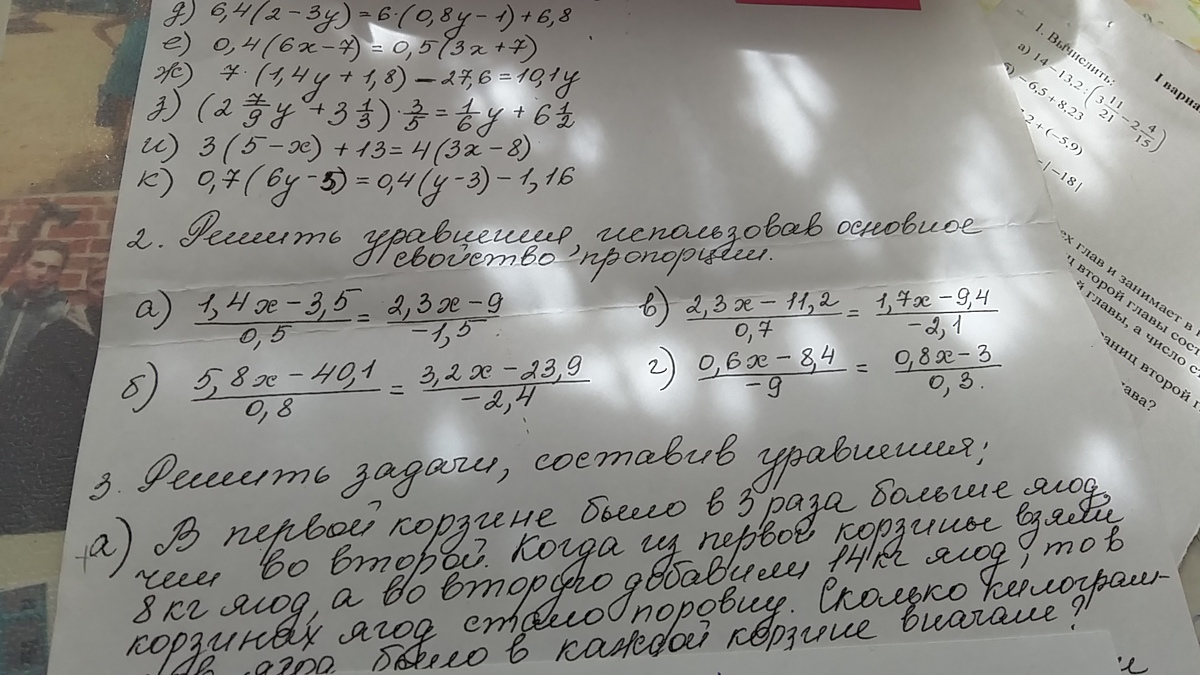 д) 6,4(2-3y)=6·(0,8y-1)+6,8
е) 0,4(6x-7)=0,5(3x+7)
ж) 7·(1,4y+1,8)-27,6=10,1y
з) (2 7/9 y + 3 1/3)·3/5 = 1/6 y + 6 1/2
и) 3(5-x)+13=4(3x-8)
к) 0,7(6y-5)=0,4(y-3)-1,16
2. Решить уравнения, использовав основное
свойство пропорции.
а) (1,4x-3,5)/0,5 = (2,3x-9)/-1,5
в) (2,3x-11,2)/0,7 = (1,7x-9,4)/-2,1
б) (5,8x-40,1)/0,8 = (3,2x-23,9)/-2,4
г) (0,6x-8,4)/-9 = (0,8x-3)/0,3.
3. Решить задачи, составив уравнения;
а) В первой корзине было в 3 раза больше ягод,
чем во второй. Когда из первой корзины взяли
8 кг ягод, а во вторую добавили 14 кг ягод, то в
корзинах ягод стало поровну. Сколько килограм-
ягод было в каждой корзине вначале?
I вариа
1. Вычислить:
а) 14-13,2:(3 11/21-2 4/15)
-6,5+8,23
,2+(-5,9)
-|-18|
глав и занимает в
второй главы сост
главы, а число ст
раниц второй г
ава?